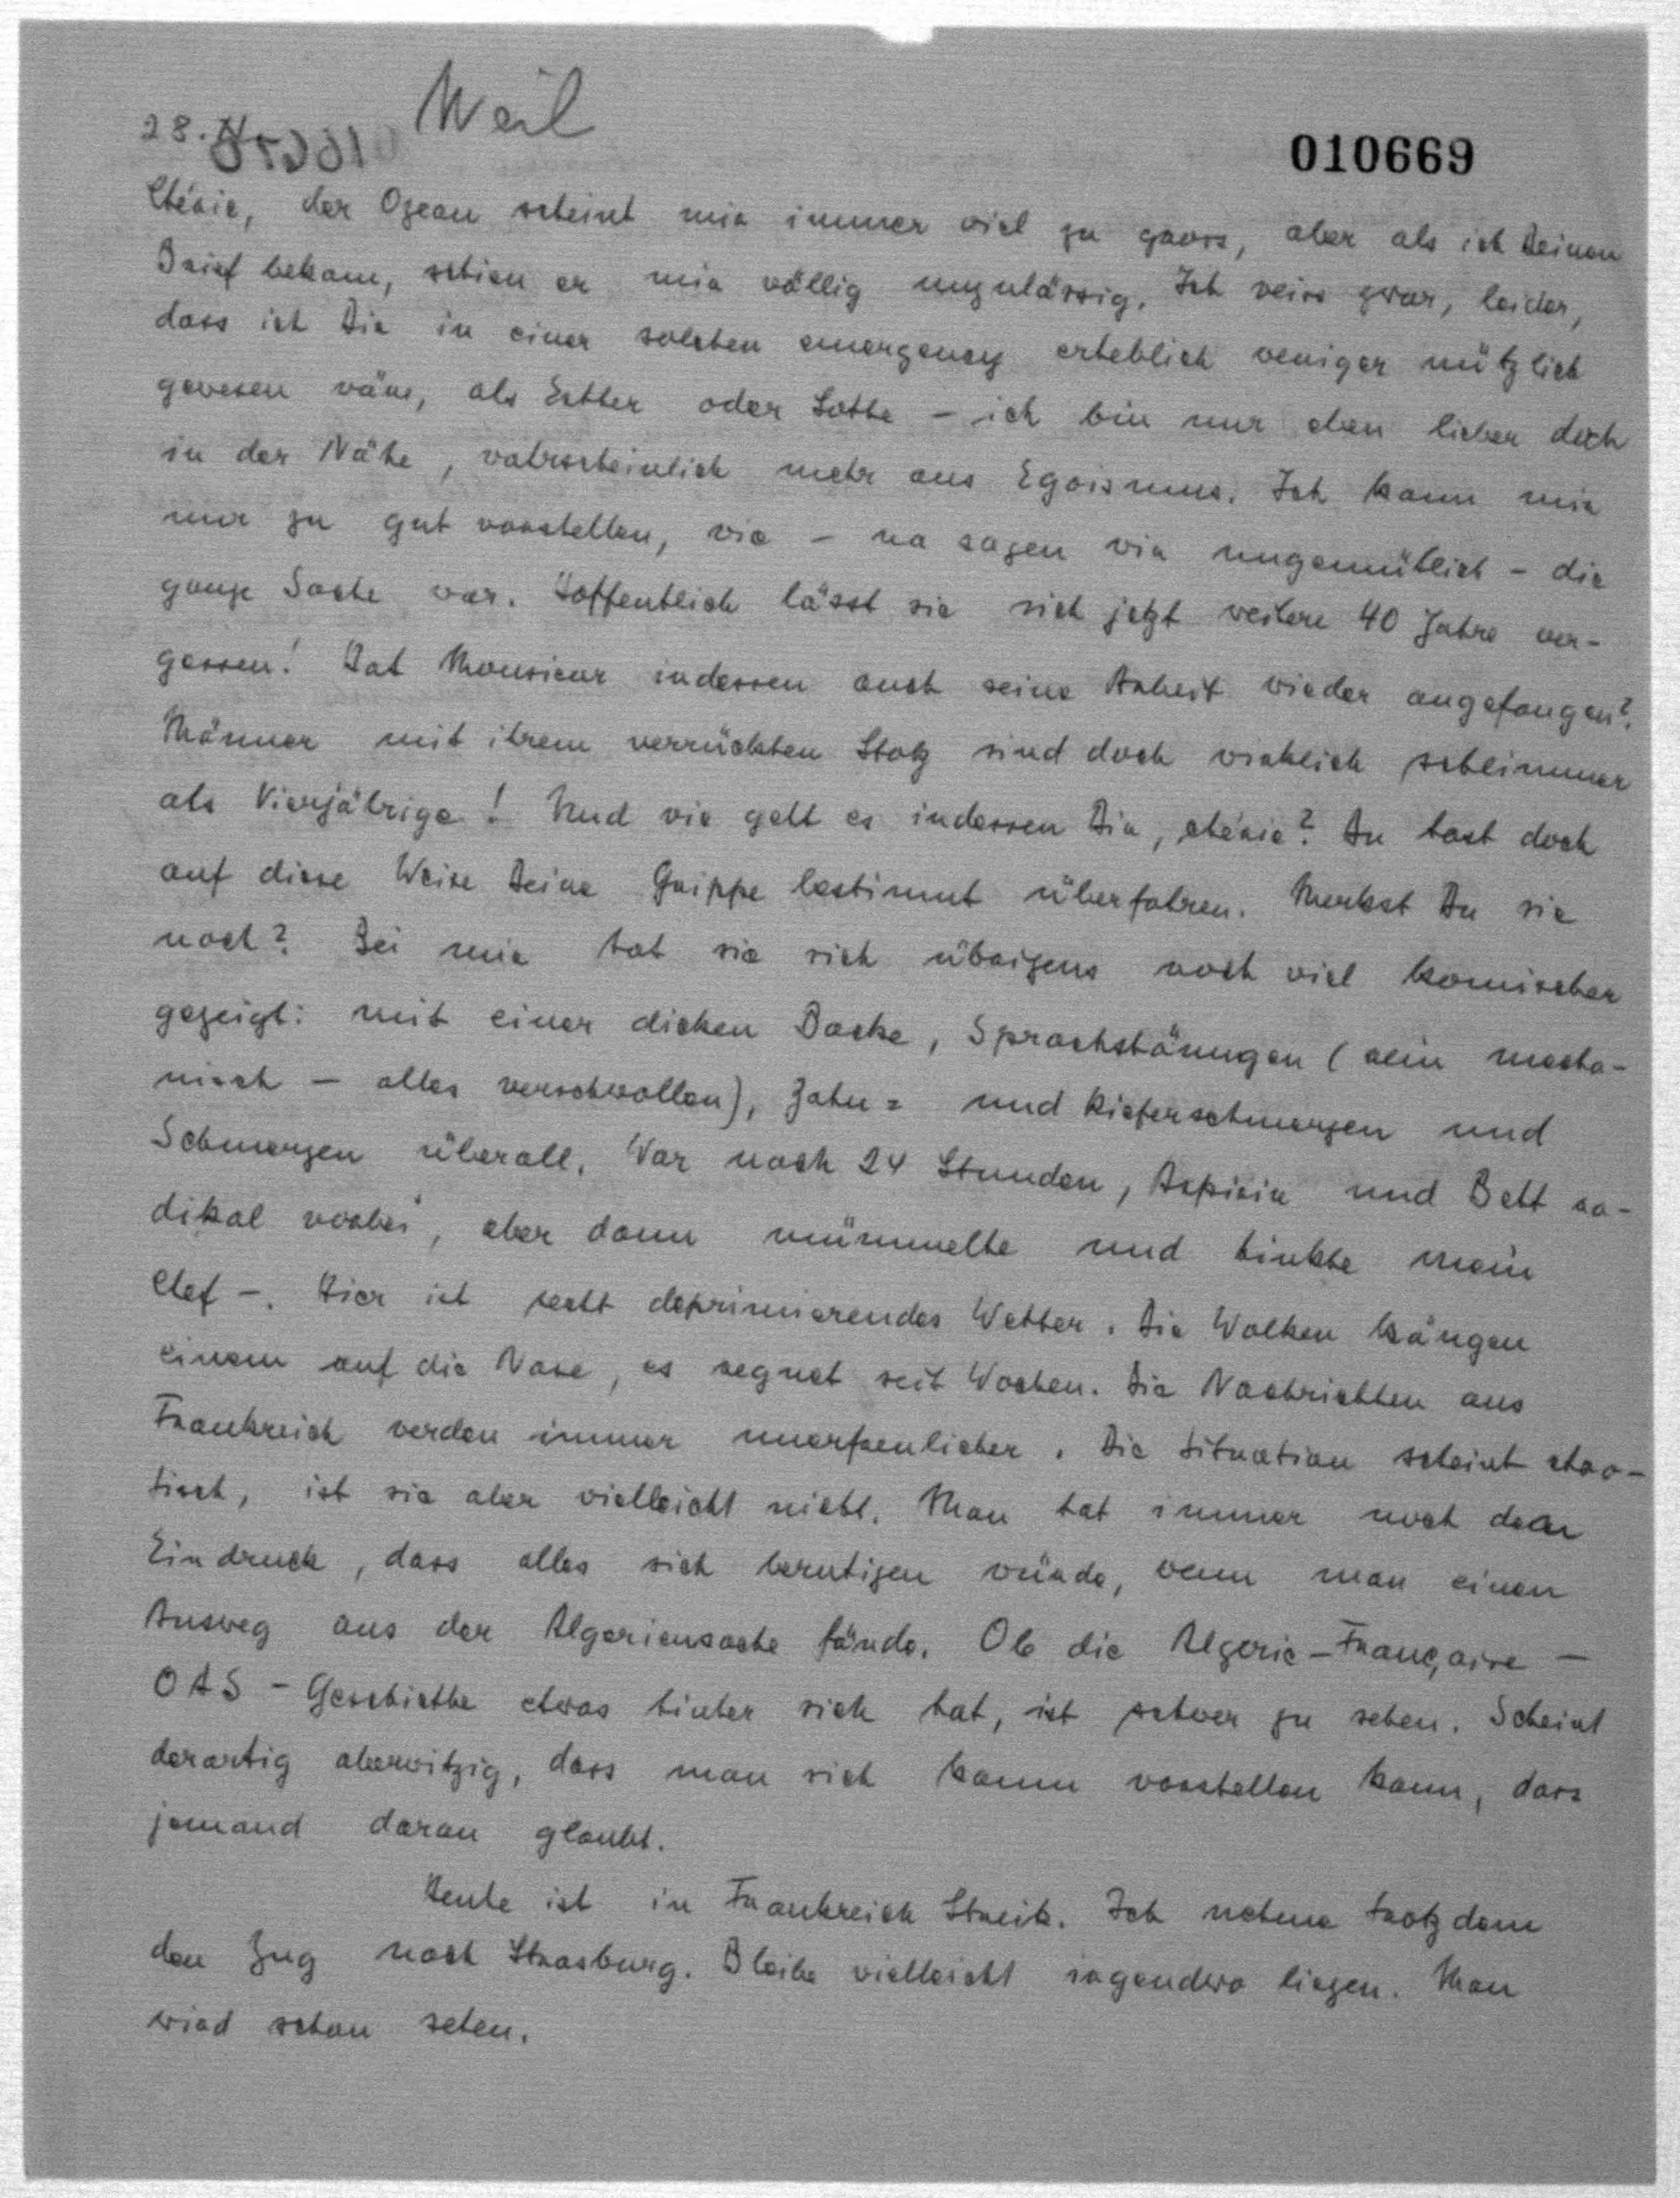 Weil
28.
010669
Chérie, der Ozean scheint mir immer viel zu gross, aber als ich Deinen
Brief bekam, schien er mir völlig unzulässig. Ich weiss zwar, leider,
dass ich Dir in einer solchen emergency erheblich weniger nützlich
gewesen wäre, als Esther oder Lotte – ich bin nur eben lieber doch
in der Nähe, wahrscheinlich mehr aus Egoismus. Ich kann mir
nur zu gut vorstellen, wie – na sagen wir ungemütlich – die
ganze Sache war. Hoffentlich lässt sie sich jetzt weitere 40 Jahre ver-
gessen! Hat Monsieur indessen auch seine Arbeit wieder angefangen?
Männer mit ihrem verrückten Stolz sind doch wirklich schlimmer
als Vierjährige! Und wie geht es indessen Dir, chérie? Du hast doch
auf diese Weise Deine Grippe bestimmt überfahren. Merkst Du sie
noch? Bei mir hat sie sich übrigens noch viel komischer
gezeigt: mit einer dicken Backe, Sprachstörungen (rein mecha-
nisch – alles verschwollen), Zahn= und Kieferschmerzen und
Schmerzen überall. War nach 24 Stunden, Aspirin und Bett ra-
dikal vorbei, aber dann mümmelte und hinkte mein
Chef –. Hier ist recht deprimierendes Wetter. Die Wolken hängen
einem auf die Nase, es regnet seit Wochen. Die Nachrichten aus
Frankreich werden immer unerfreulicher. Die Situation scheint chao-
tisch, ist sie aber vielleicht nicht. Man hat immer noch den
Eindruck, dass alles sich beruhigen würde, wenn man einen
Ausweg aus der Algeriensache fände. Ob die Algerie-Française –
OAS – Geschichte etwas hinter sich hat, ist schwer zu sehen. Scheint
derartig aberwitzig, dass man sich kaum vorstellen kann, dass
jemand daran glaubt.
Heute ist in Frankreich Streik. Ich nehme trotzdem
den Zug nach Strasburg. Bleibe vielleicht irgendwo liegen. Man
wird schon sehen.